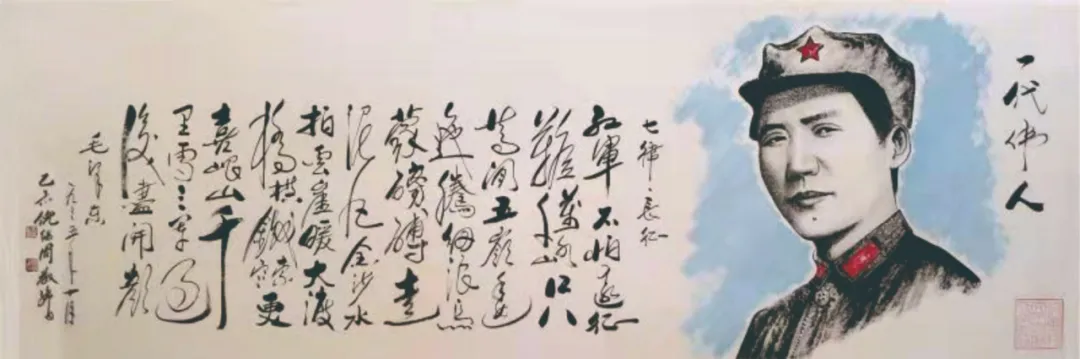 一代伟人
七律 长征
红軍不怕远征
難萬水千山只
等闲五嶺逶
迤腾细浪乌
蒙磅礴走
泥丸金沙水
拍雲崖暖大渡
橋横鐵索寒更
喜岷山千
里雪三军过
後盡開颜
毛泽东
一九三五年十月